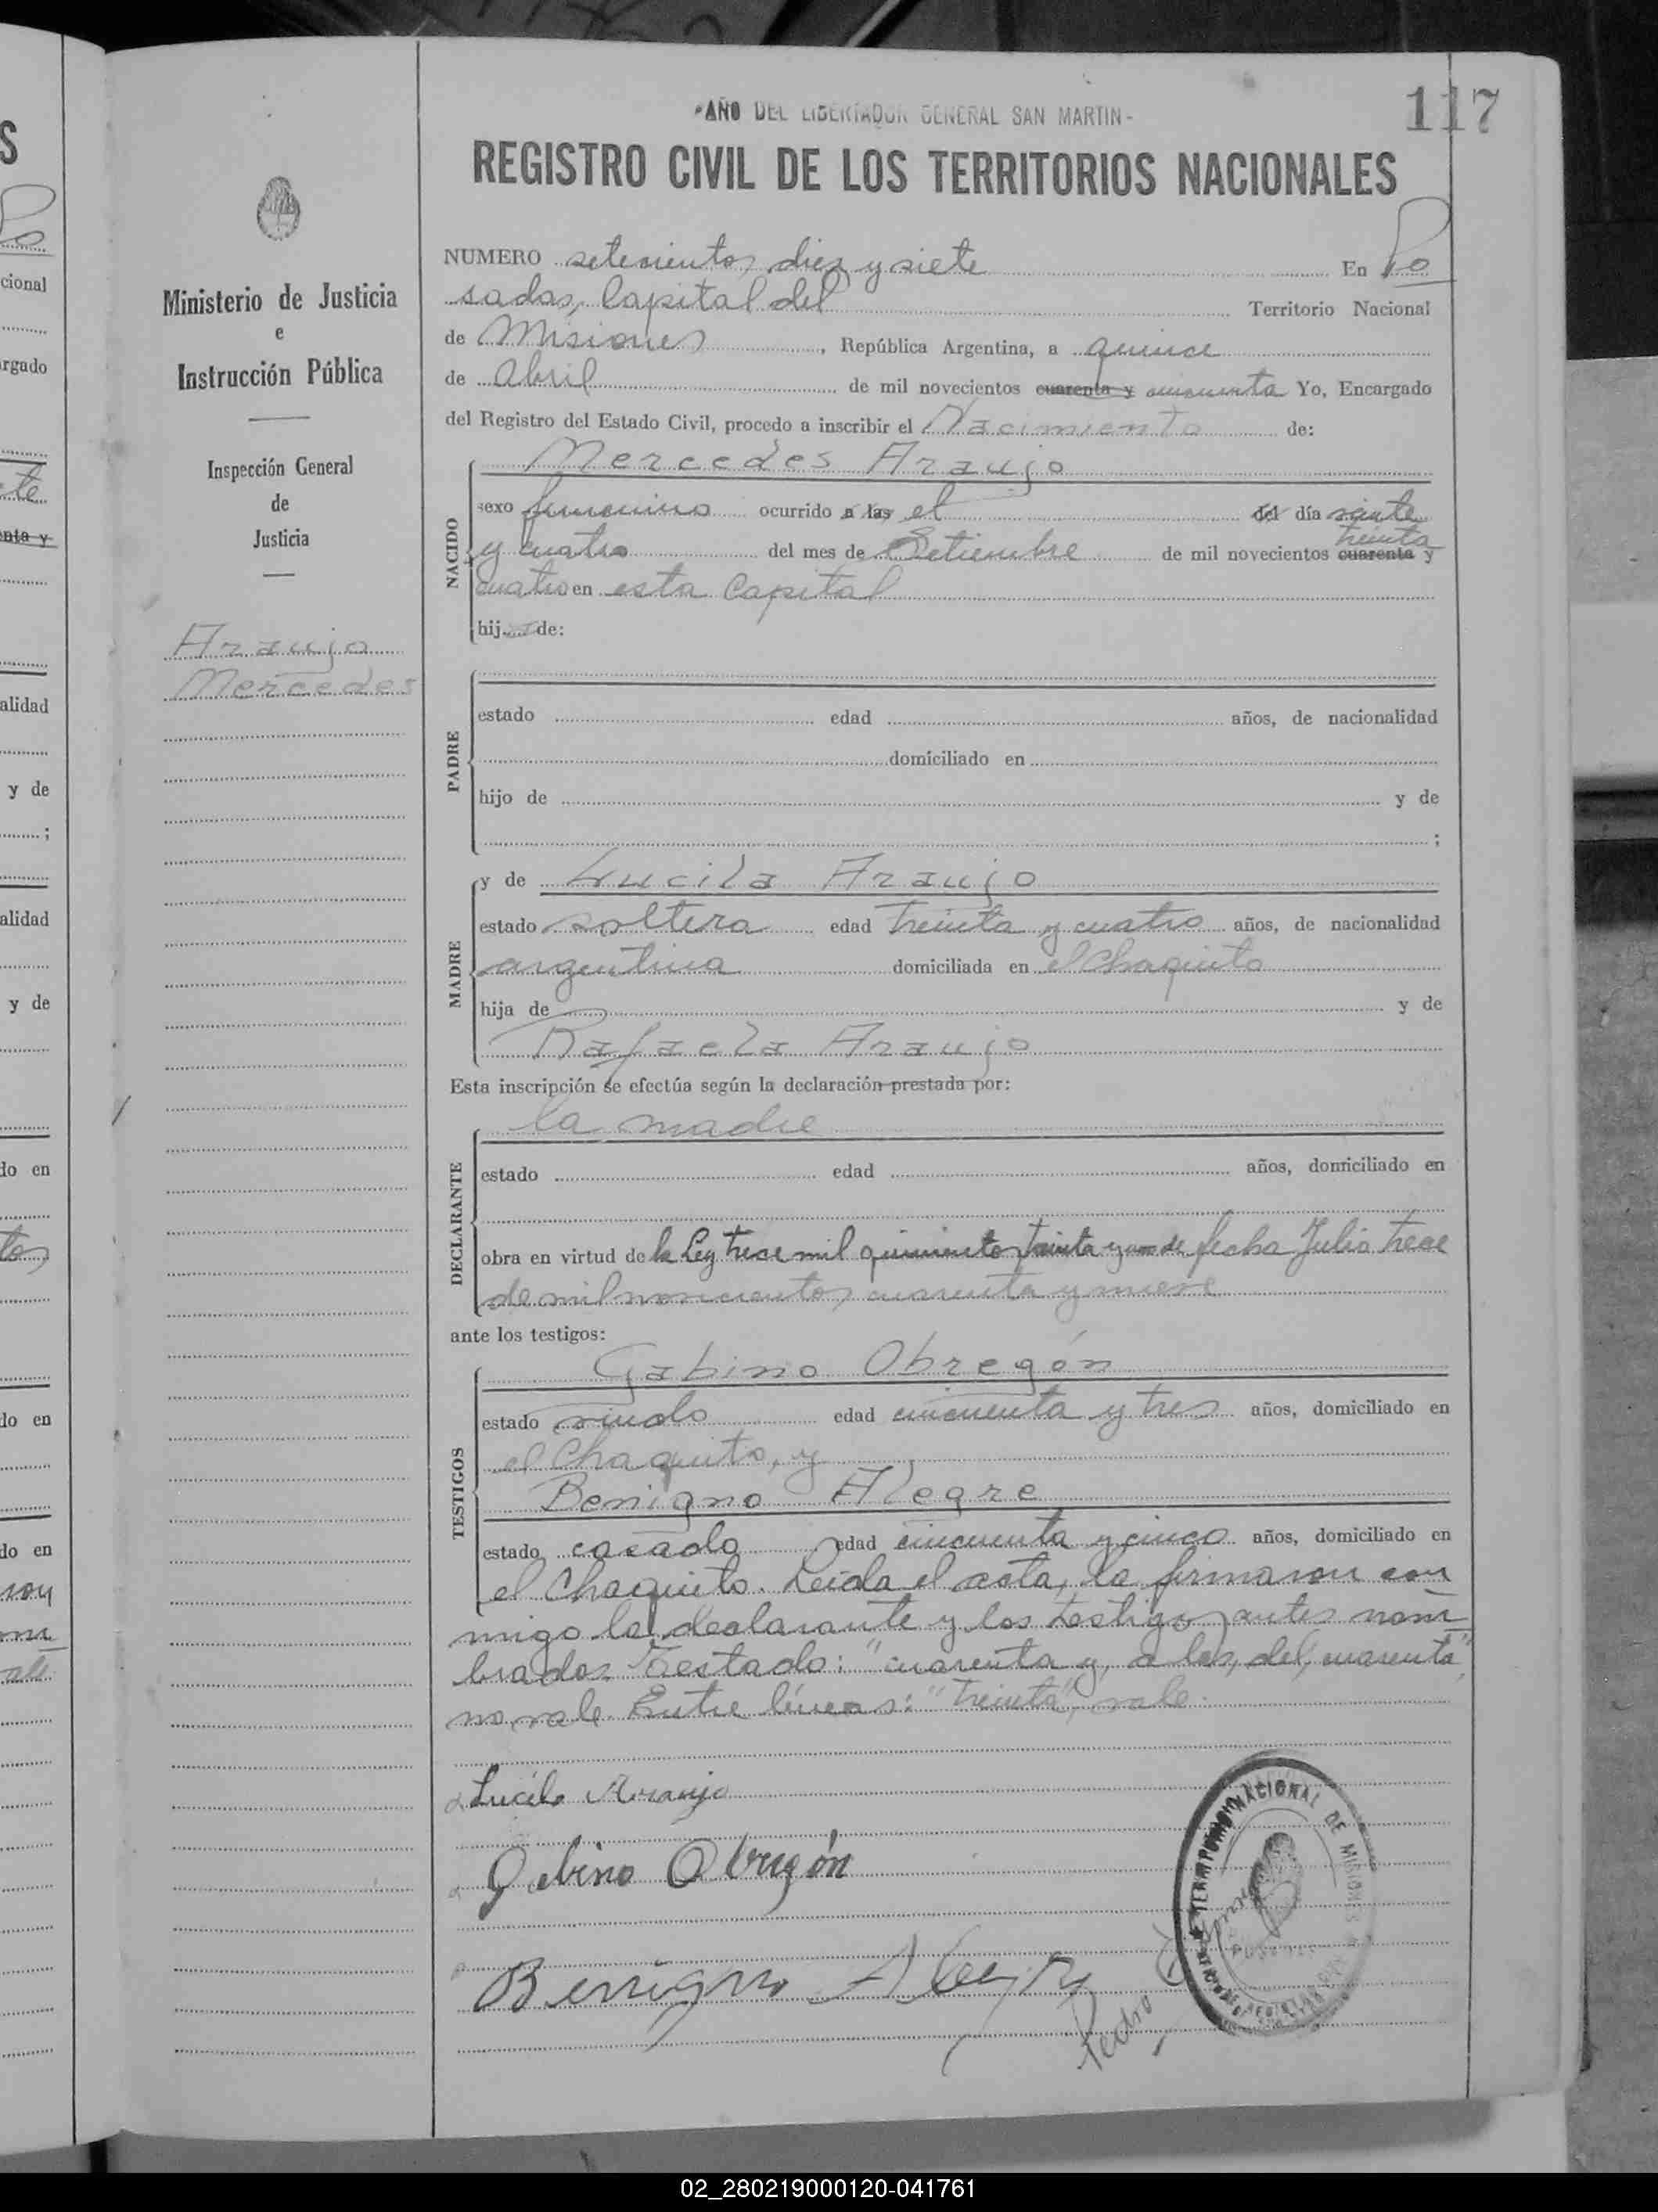 117
"AÑO DEL LIBERTADOR GENERAL SAN MARTIN-
REGISTRO CIVIL DE LOS TERRITORIOS NACIONALES
Ministerio de Justicia
e
Instrucción Pública
Inspección General
de
Justicia
Araujo
Mercedes
NUMERO setecientos diez y siete En Po
sadas, Capital del Territorio Nacional
de Misiones, República Argentina, a quince
de Abril de mil novecientos cuarenta y cincuenta Yo, Encargado
del Registro del Estado Civil, procedo a inscribir el Nacimiento de:
Mercedes Araujo
NACIDO
sexo femenino ocurrido a las el del día veinte
treinta
y cuatro del mes de Setiembre de mil novecientos cuarenta y
cuatro en esta Capital
hij de:
PADRE
estado edad años, de nacionalidad
domiciliado en
hijo de y de
;
MADRE
y de Lucila Araujo
estado soltera edad treinta y cuatro años, de nacionalidad
argentina domiciliada en el Chaquito
hija de y de
Rafaela Araujo
Esta inscripción se efectúa según la declaración prestada por:
la madre
DECLARANTE
estado edad años, domiciliado en
obra en virtud de la Ley trece mil quinientos treinta y un de fecha Julio trece
de mil novecientos cuarenta y nueve
ante los testigos:
Gabino Obregón
TESTIGOS
estado viudo edad cincuenta y tres años, domiciliado en
el Chaquito, y
Benigno Alegre
estado casado edad cincuenta y cinco años, domiciliado en
el Chaquito. Leída el acta, la firmaron con
migo la declarante y los testigos antes nom
brados Testado: "cuarenta y, a las, del, cuarenta"
no vale. Entre líneas: "treinta", vale.
Lucila Araujo
Gabino Obregón
Benigno Alegre
Pedro
NACIONAL DE MISIONES
POSADAS
02_280219000120-041761